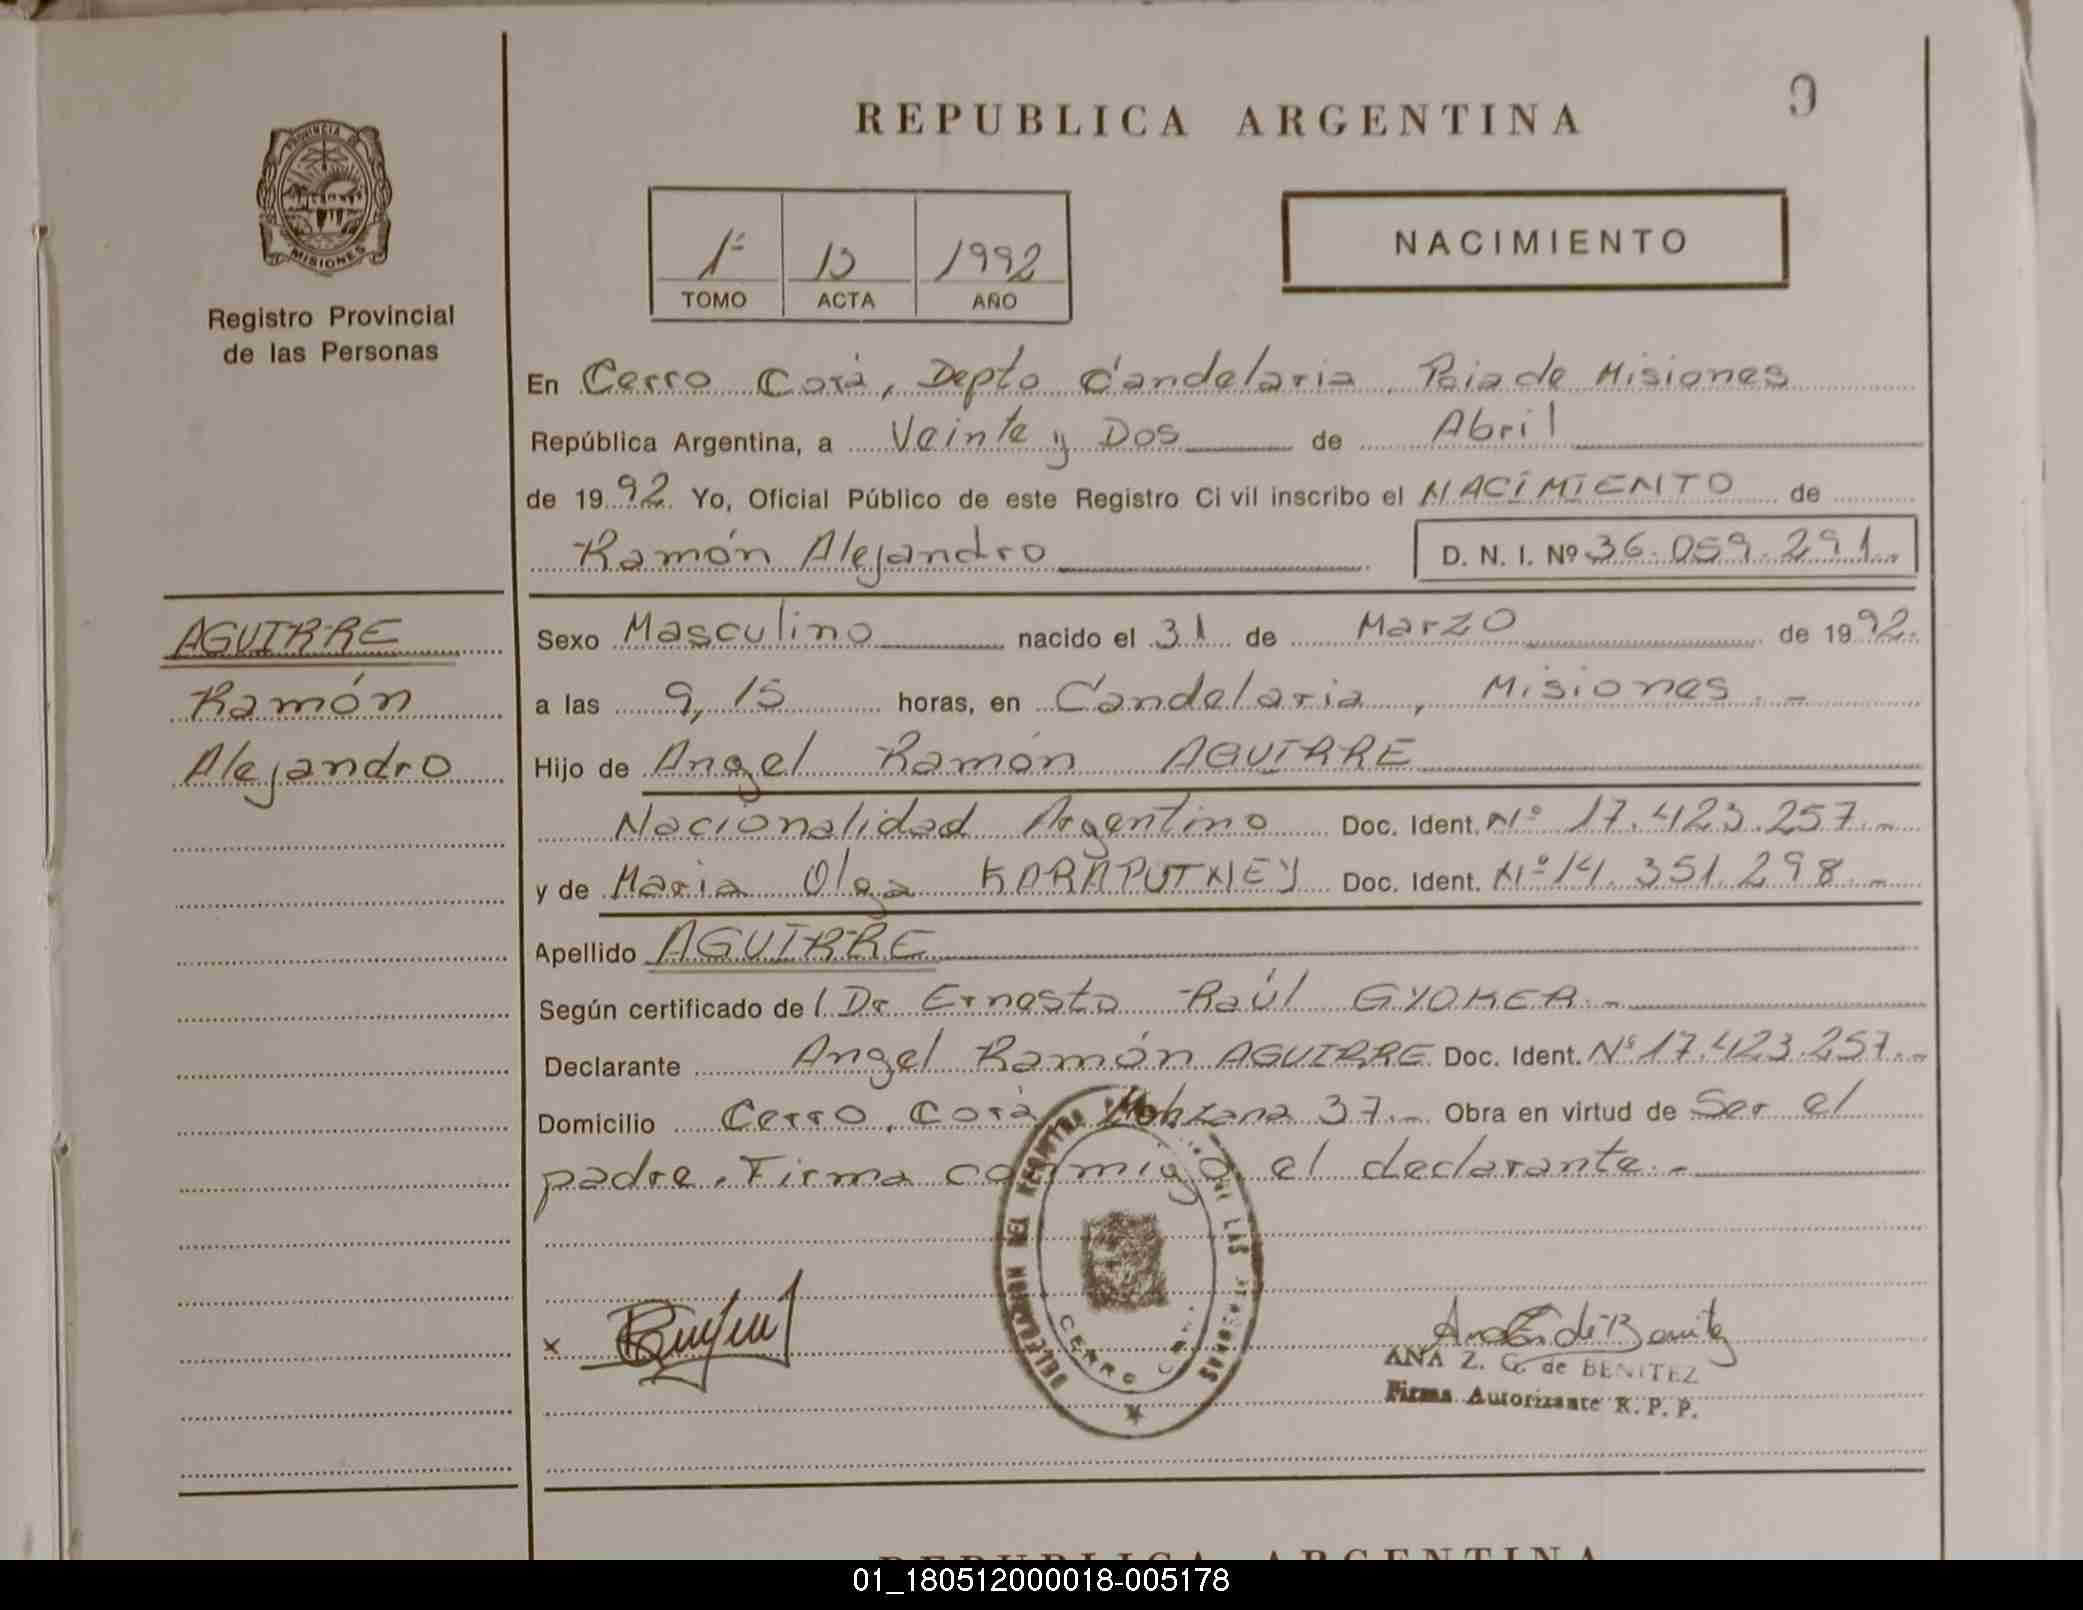 REPUBLICA ARGENTINA
9
PROVINCIA DE
MISIONES
Registro Provincial
de las Personas
1º
TOMO
13
ACTA
1992
AÑO
NACIMIENTO
En Cerro Corá, Depto Candelaria, Pcia de Misiones
República Argentina, a Veinte y Dos de Abril
de 1992 Yo, Oficial Público de este Registro Civil inscribo el NACIMIENTO de
Ramón Alejandro D. N. I. Nº 36.059.291.
AGUIRRE
Ramón
Alejandro
Sexo Masculino nacido el 31 de Marzo de 1992.
a las 9,15 horas, en Candelaria, Misiones. -
Hijo de Angel Ramón AGUIRRE
Nacionalidad Argentino Doc. Ident. Nº 17.423.257.-
y de Maria Olga KARAPUTNEY Doc. Ident. Nº 14.351.298.-
Apellido AGUIRRE
Según certificado de l Dr Ernesto Raúl GYOKER.-
Declarante Angel Ramón AGUIRRE Doc. Ident. Nº 17.423.257.-
Domicilio Cerro Corá Manzana 37.- Obra en virtud de Ser el
padre. Firma conmigo el declarante.-
DELEGACION DEL REGISTRO DE LAS PERSONAS
CERRO
x
Ana G de Benitez
ANA Z. G. de BENITEZ
Firma Autorizante R. P. P.
REPUBLICA ARGENTINA
01_180512000018-005178